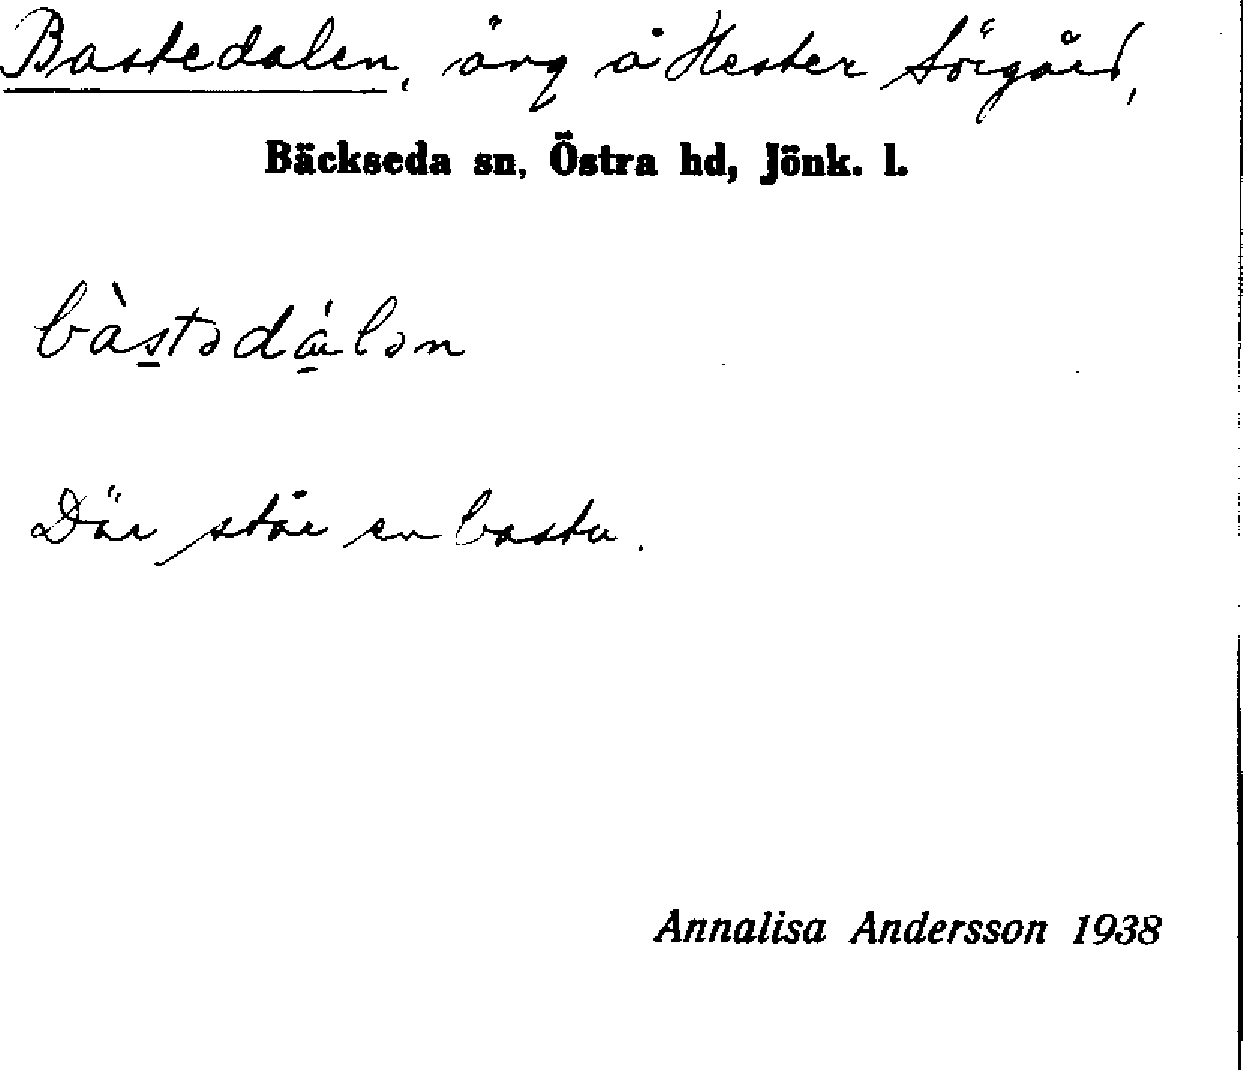 Bastedalen, äng å Hester Sörgård,
Bäckseda sn, Östra hd, Jönk. l.
bàstədálən
Där står en bastu.
Annalisa Andersson 1938